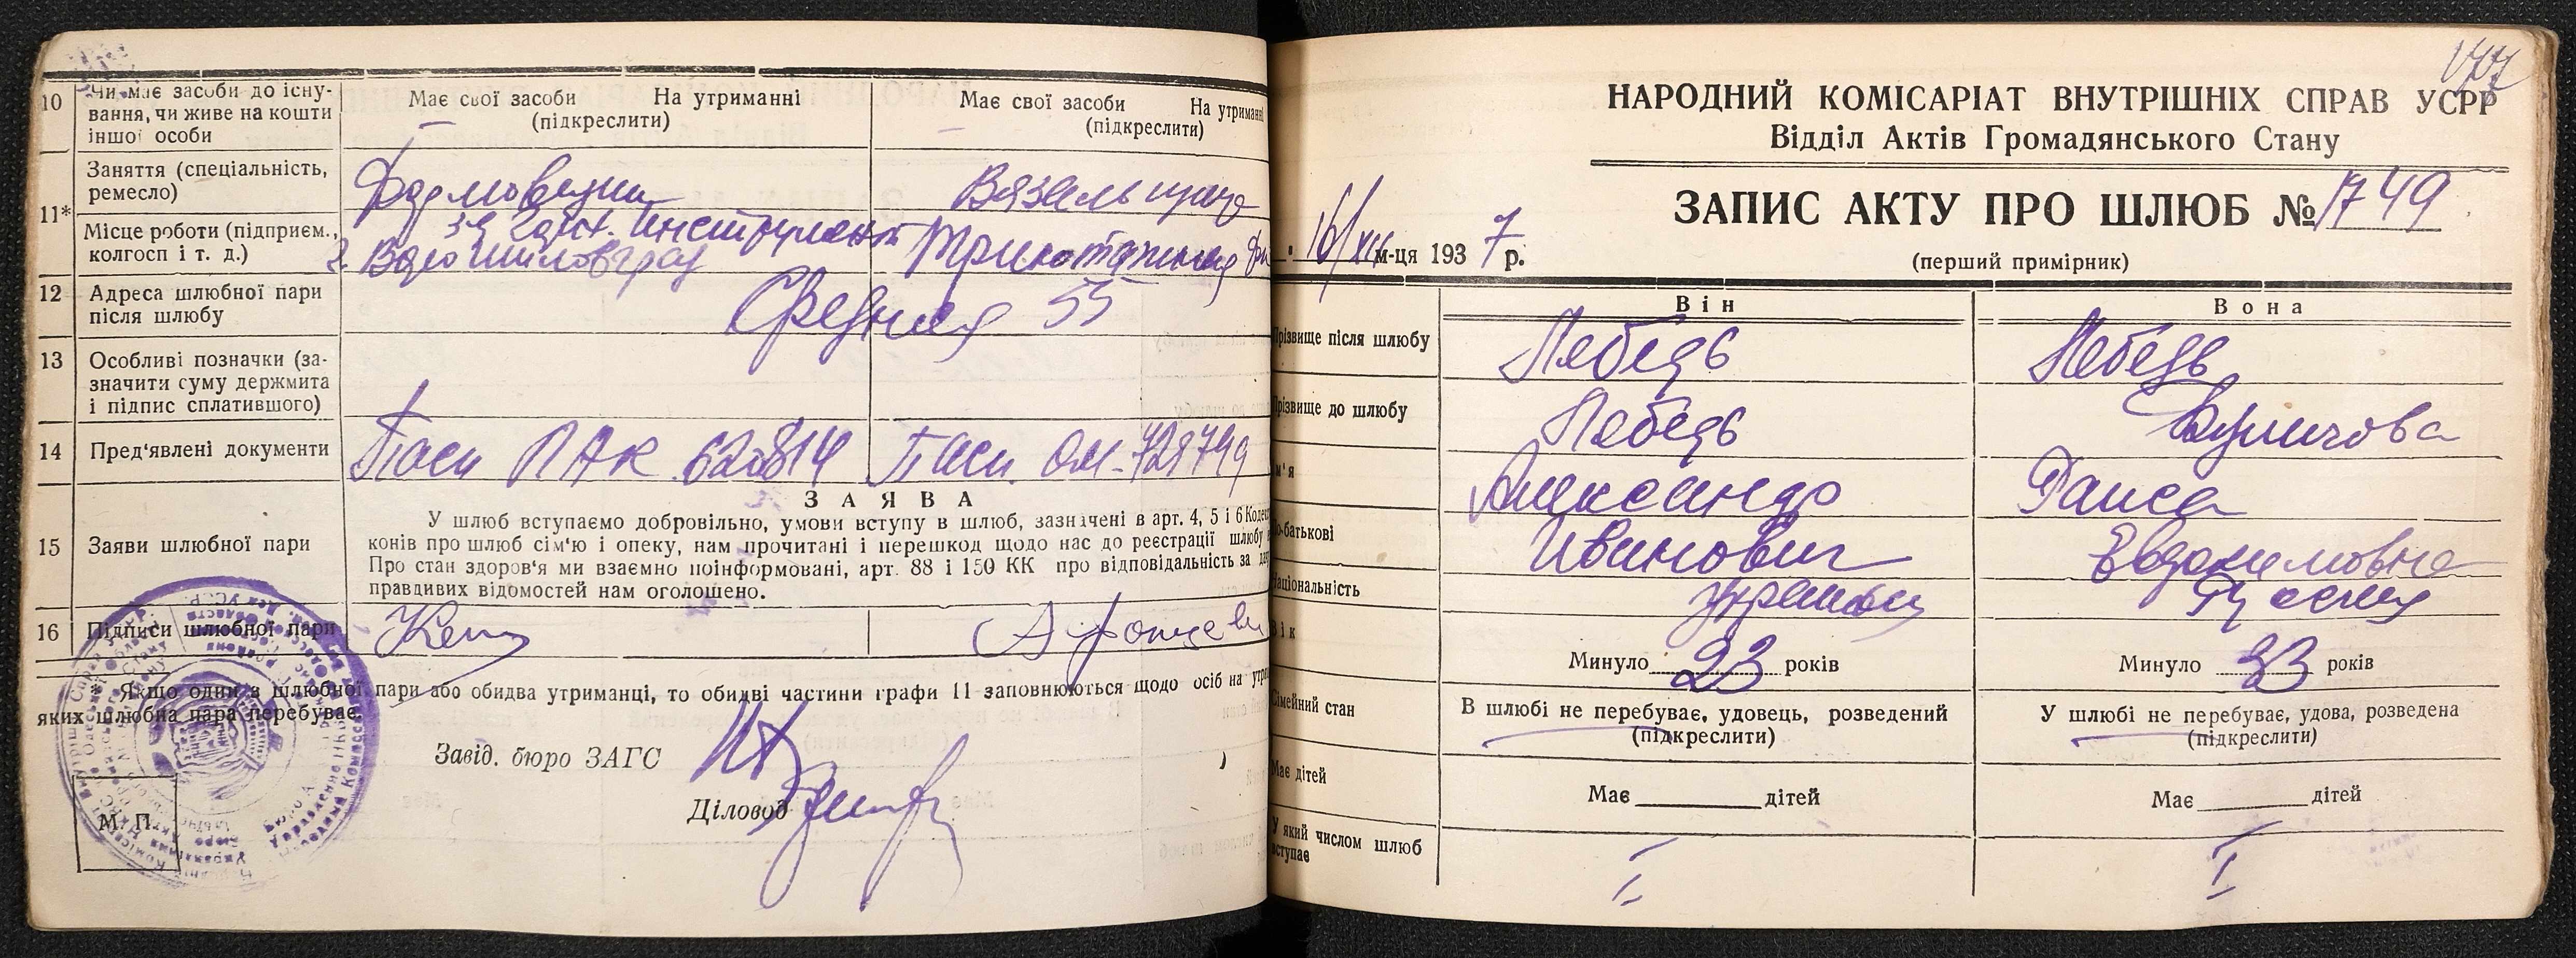 10
Чи має засоби до існу-
вання, чи живе на кошти
іншої особи
Має свої засоби На утриманні
(підкреслити)
Має свої засоби На утриманні
(підкреслити)
11*
Заняття (спеціальність,
ремесло)
Вязальщица
Місце роботи (підприєм.,
колгосп і т. д.)
инструмент
г. Ворошиловград
Трикотажная
12
Адреса шлюбної пари
після шлюбу
Средняя 55
13
Особливі позначки (за-
значити суму держмита
і підпис сплатившого)
14
Пред'явлені документи
Пасп ПАК 620814
Пасп. ОМ-728749
15
Заяви шлюбної пари
ЗАЯВА
У шлюб вступаємо добровільно, умови вступу в шлюб, зазначені в арт. 4, 5 і 6
конів про шлюб сім'ю і опеку, нам прочитані і перешкод щодо нас до реєстрації шлюбу
Про стан здоров'я ми взаємно поінформовані, арт. 88 і 150 КК про відповідальність за
правдивих відомостей нам оголошено.
16
Підписи шлюбної пари
* Якщо один з шлюбної пари або обидва утриманці, то обидві частини графи 11 заповнюються щодо осіб на
яких шлюбна пара перебуває.
Завід. бюро ЗАГС
Діловод
М. П.
НАРОДНИЙ КОМІСАРІАТ ВНУТРІШНІХ СПРАВ УСРР
Відділ Актів Громадянського Стану
ЗАПИС АКТУ ПРО ШЛЮБ № 1749
16/XII м-ця 1937 р.
(перший примірник)
Він
Вона
Прізвище після шлюбу
Лебедь
Лебедь
Прізвище до шлюбу
Лебедь
м'я
Александр
Раиса
По-батькові
Иванович
Евдокимовна
Національність
Вік
Минуло 23 років
Минуло 33 років
Сімейний стан
В шлюбі не перебуває, удовець, розведений
(підкреслити)
У шлюбі не перебуває, удова, розведена
(підкреслити)
Має дітей
Має дітей
Має дітей
У який числом шлюб
вступає
I
I